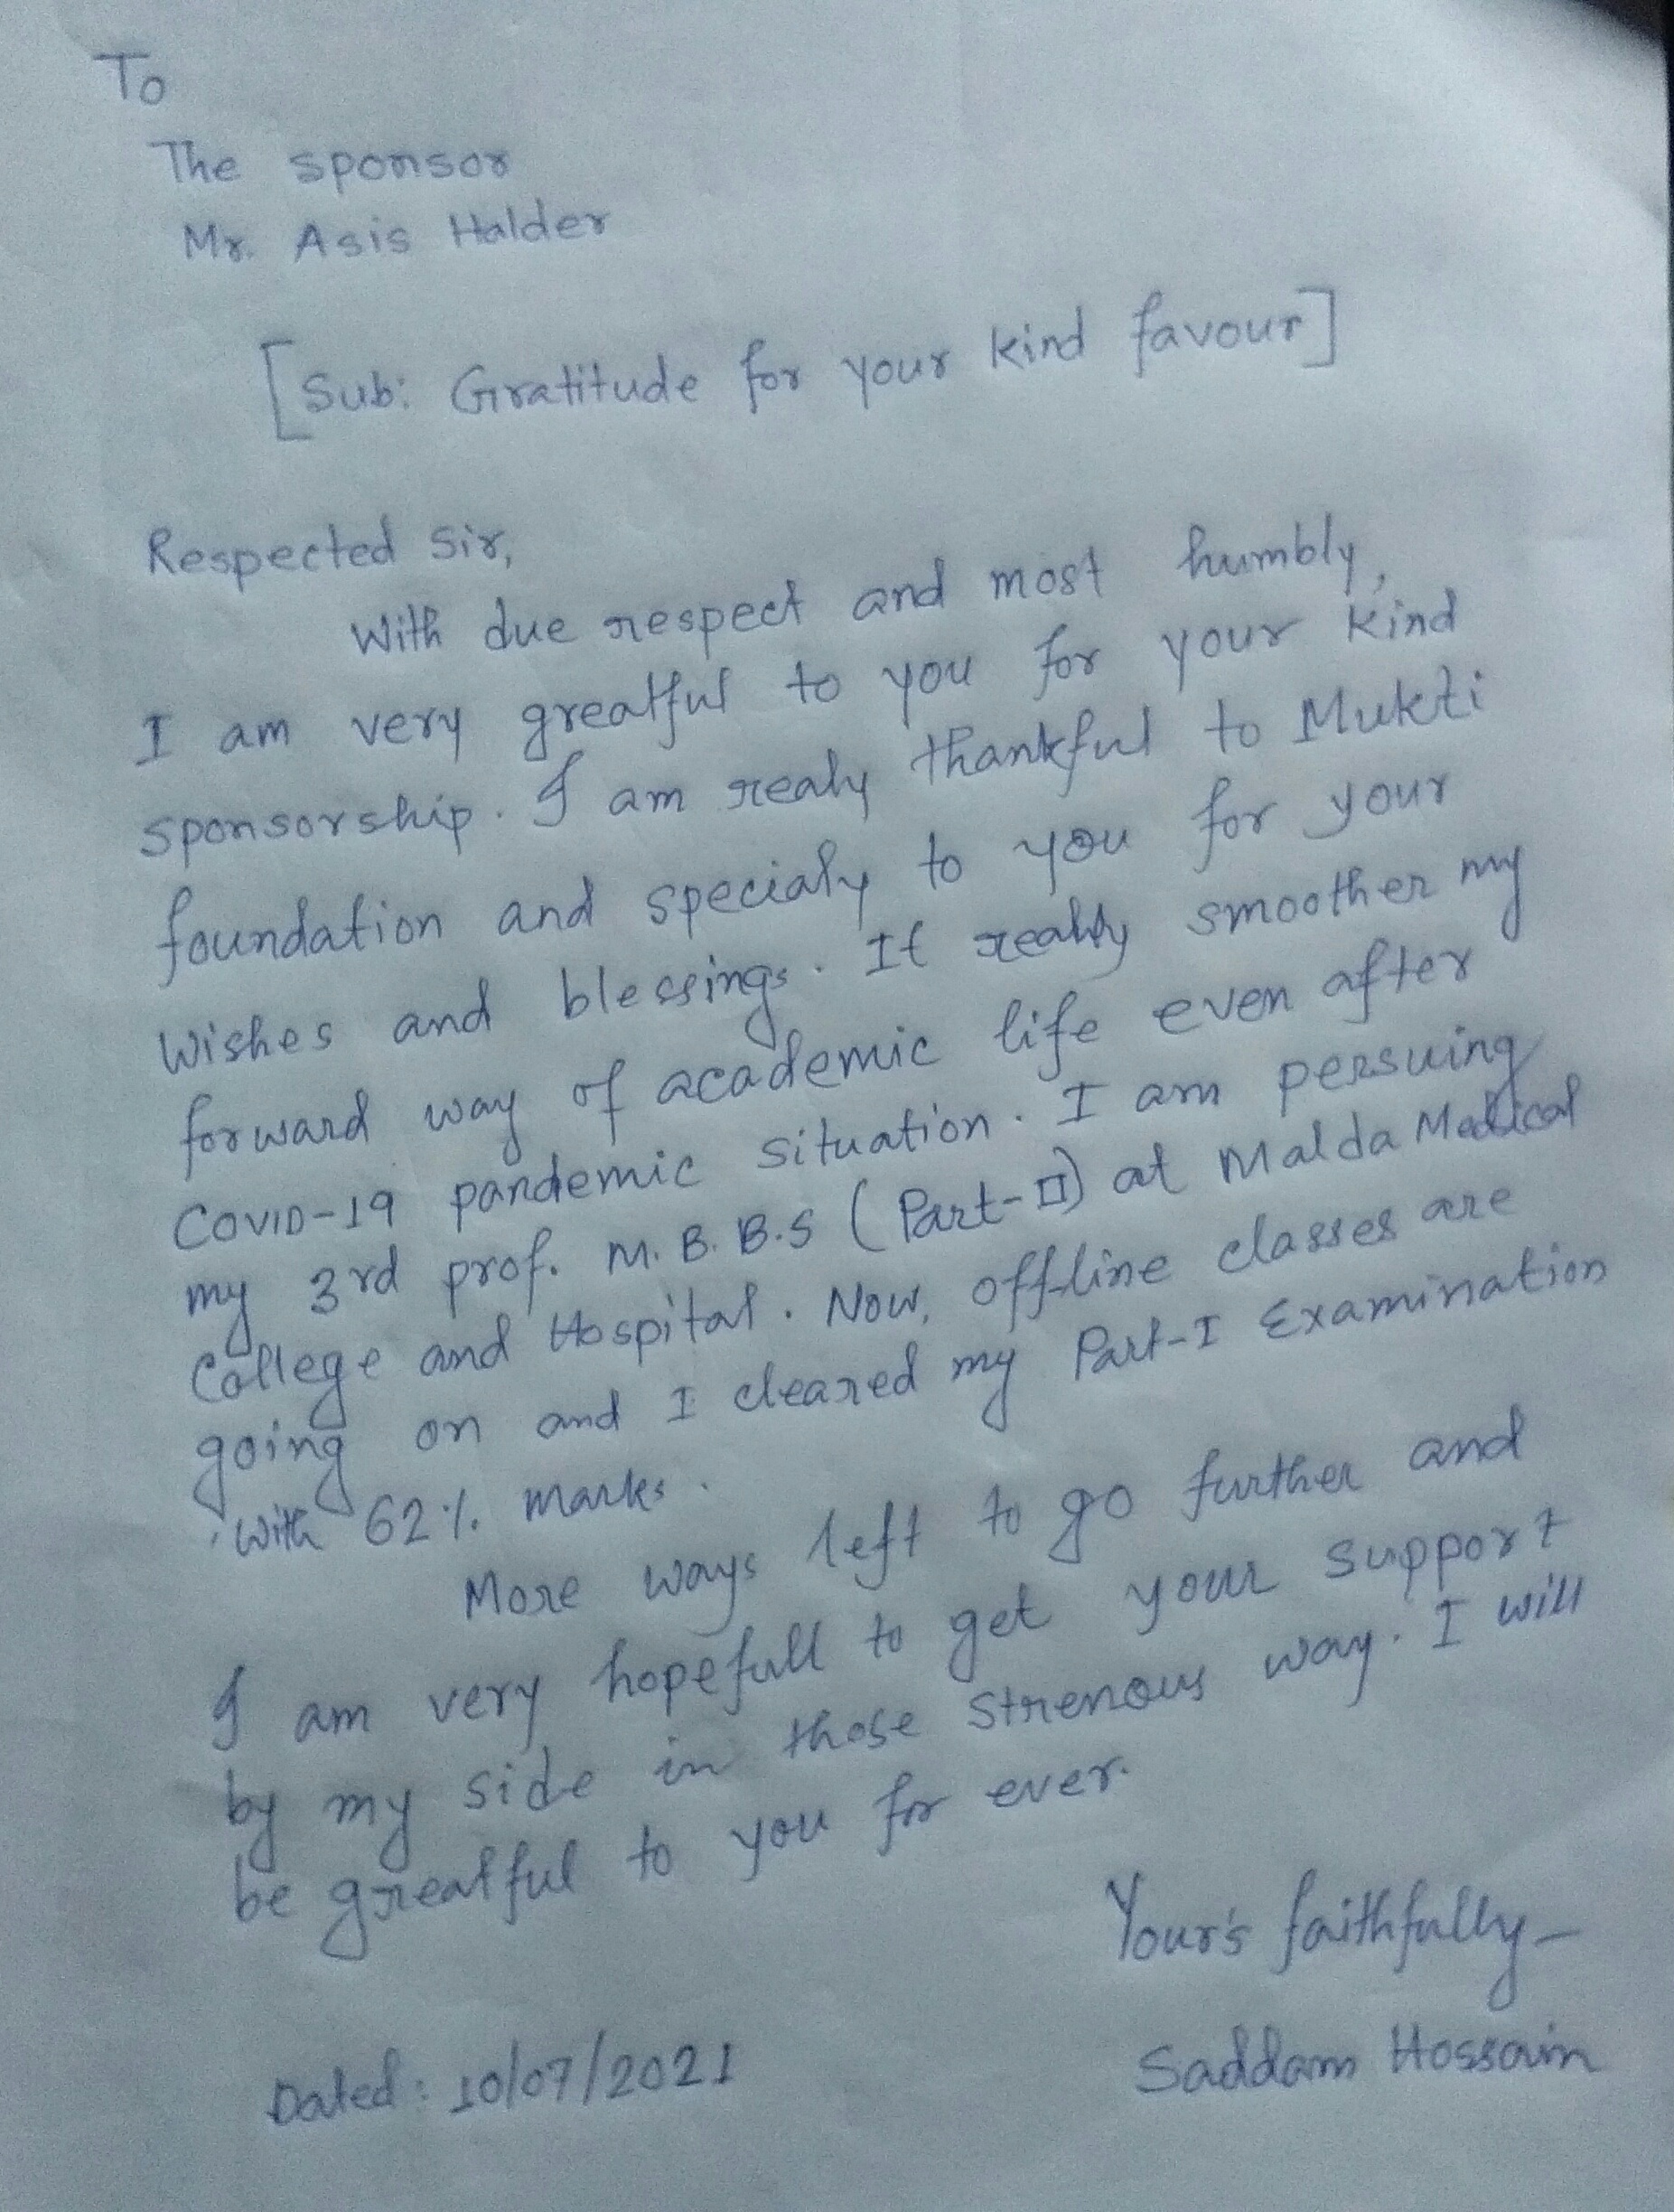 To
The sponsor
Mr. Asis Halder
[Sub: Gratitude for your kind favour]
Respected Sir,
With due respect and most humbly,
I am very greatful to you for your kind
sponsorship. I am realy thankful to Mukti
foundation and specialy to you for your
wishes and blessings. It really smoother my
forward way of academic life even after
COVID-19 pandemic situation. I am persuing
my 3rd prof. M.B.B.S (Part-II) at Malda Medical
College and Hospital. Now, offline classes are
going on and I cleared my Part-I Examination
with 62% marks.
More ways left to go further and
I am very hopefull to get your support
by my side in those strenous way. I will
be greatful to you for ever.
Your's faithfully-
Saddam Hossain
Dated: 10/07/2021